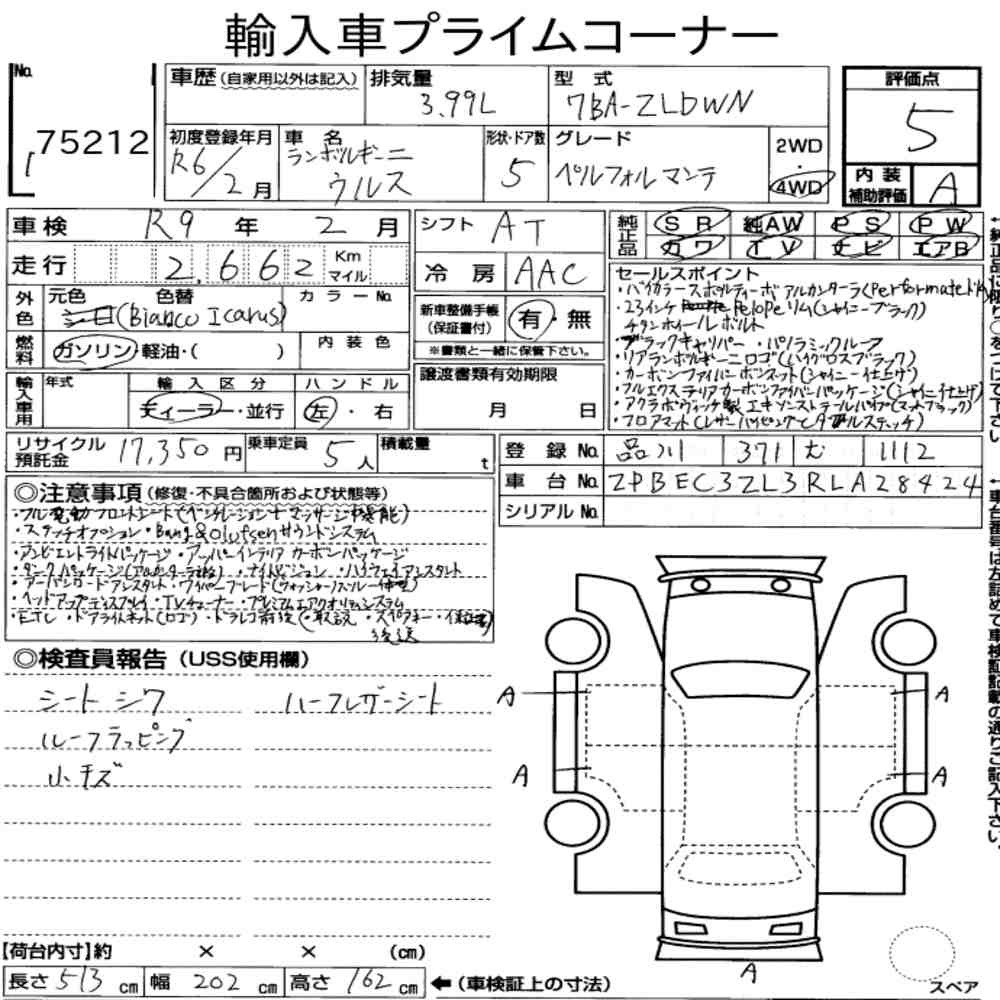 輸入車プライムコーナー
No. 75212
車歴(自家用以外は記入)
排気量 3.99L
型式 7BA-ZLDWN
評価点 5
初度登録年月 R6/2月
車名 ランボルギーニ ウルス
形状・ドア数 5
グレード ペルフォルマンテ
2WD
4WD
内装補助評価 A
車検 R9年 2月
シフト AT
純正品 SR 純AW PS PW
カワ TV ナビ エアB
走行 2,662 Km マイル
冷房 AAC
外色 元色 色替 カラーNo.
シロ(Bianco Icarus)
新車整備手帳(保証書付) 有・無
※書類と一緒に保管下さい。
燃料 ガソリン・軽油・( ) 内装色
輸入車用 年式 輸入区分 ハンドル
ディーラー・並行 左・右
譲渡書類有効期限
月 日
セールスポイント
・バイカラースポルティーボアルカンターラ(Performate
・23インチ Pelopeリム(シャイニーブラック)
チタンホイールボルト
・ブラックキャリパー ・パノラミックルーフ
・リアランボルギーニロゴ(ハイグロスブラック)
・カーボンファイバーボンネット(シャイニー仕上げ)
・フルエクステリアカーボンファイバーパッケージ(シャイニー仕上げ)
・アクラポヴィッチ製エキゾーストテールパイプ(マットブラック)
・フロアマット(レザーパイピングとダブルステッチ)
リサイクル預託金 17,350円
乗車定員 5人
積載量 t
登録No. 品川 371 む 1112
車台No. ZPBEC3ZL3RLA28424
シリアルNo.
◎注意事項(修復・不具合箇所および状態等)
・フル電動フロントシート(ベンチレーション+マッサージ機能)
・ステッチオプション・Bang&Olufsenサウンドシステム
・アンビエントライトパッケージ・アッパーインテリアカーボンパッケージ
・ダークパッケージ(アルカンターラ ・ナイトビジョン・ハイウェイアシスタント
・アーバンロードアシスタント・ワイパーブレード(ウォッシャーノズル一体型)
・ヘッドアップディスプレイ・TVチューナー・プレミアムエアクオリティシステム
・ETC・ドアライトキット(ロゴ)・ドラレコ前後(・取説・スペアキー・
後送
◎検査員報告(USS使用欄)
シートシワ ハーフレザーシート
ルーフラッピング
小キズ
A
A
A
A
A
【荷台内寸】約 × × (cm)
長さ 513cm 幅 202cm 高さ 162cm ←(車検証上の寸法)
スペア